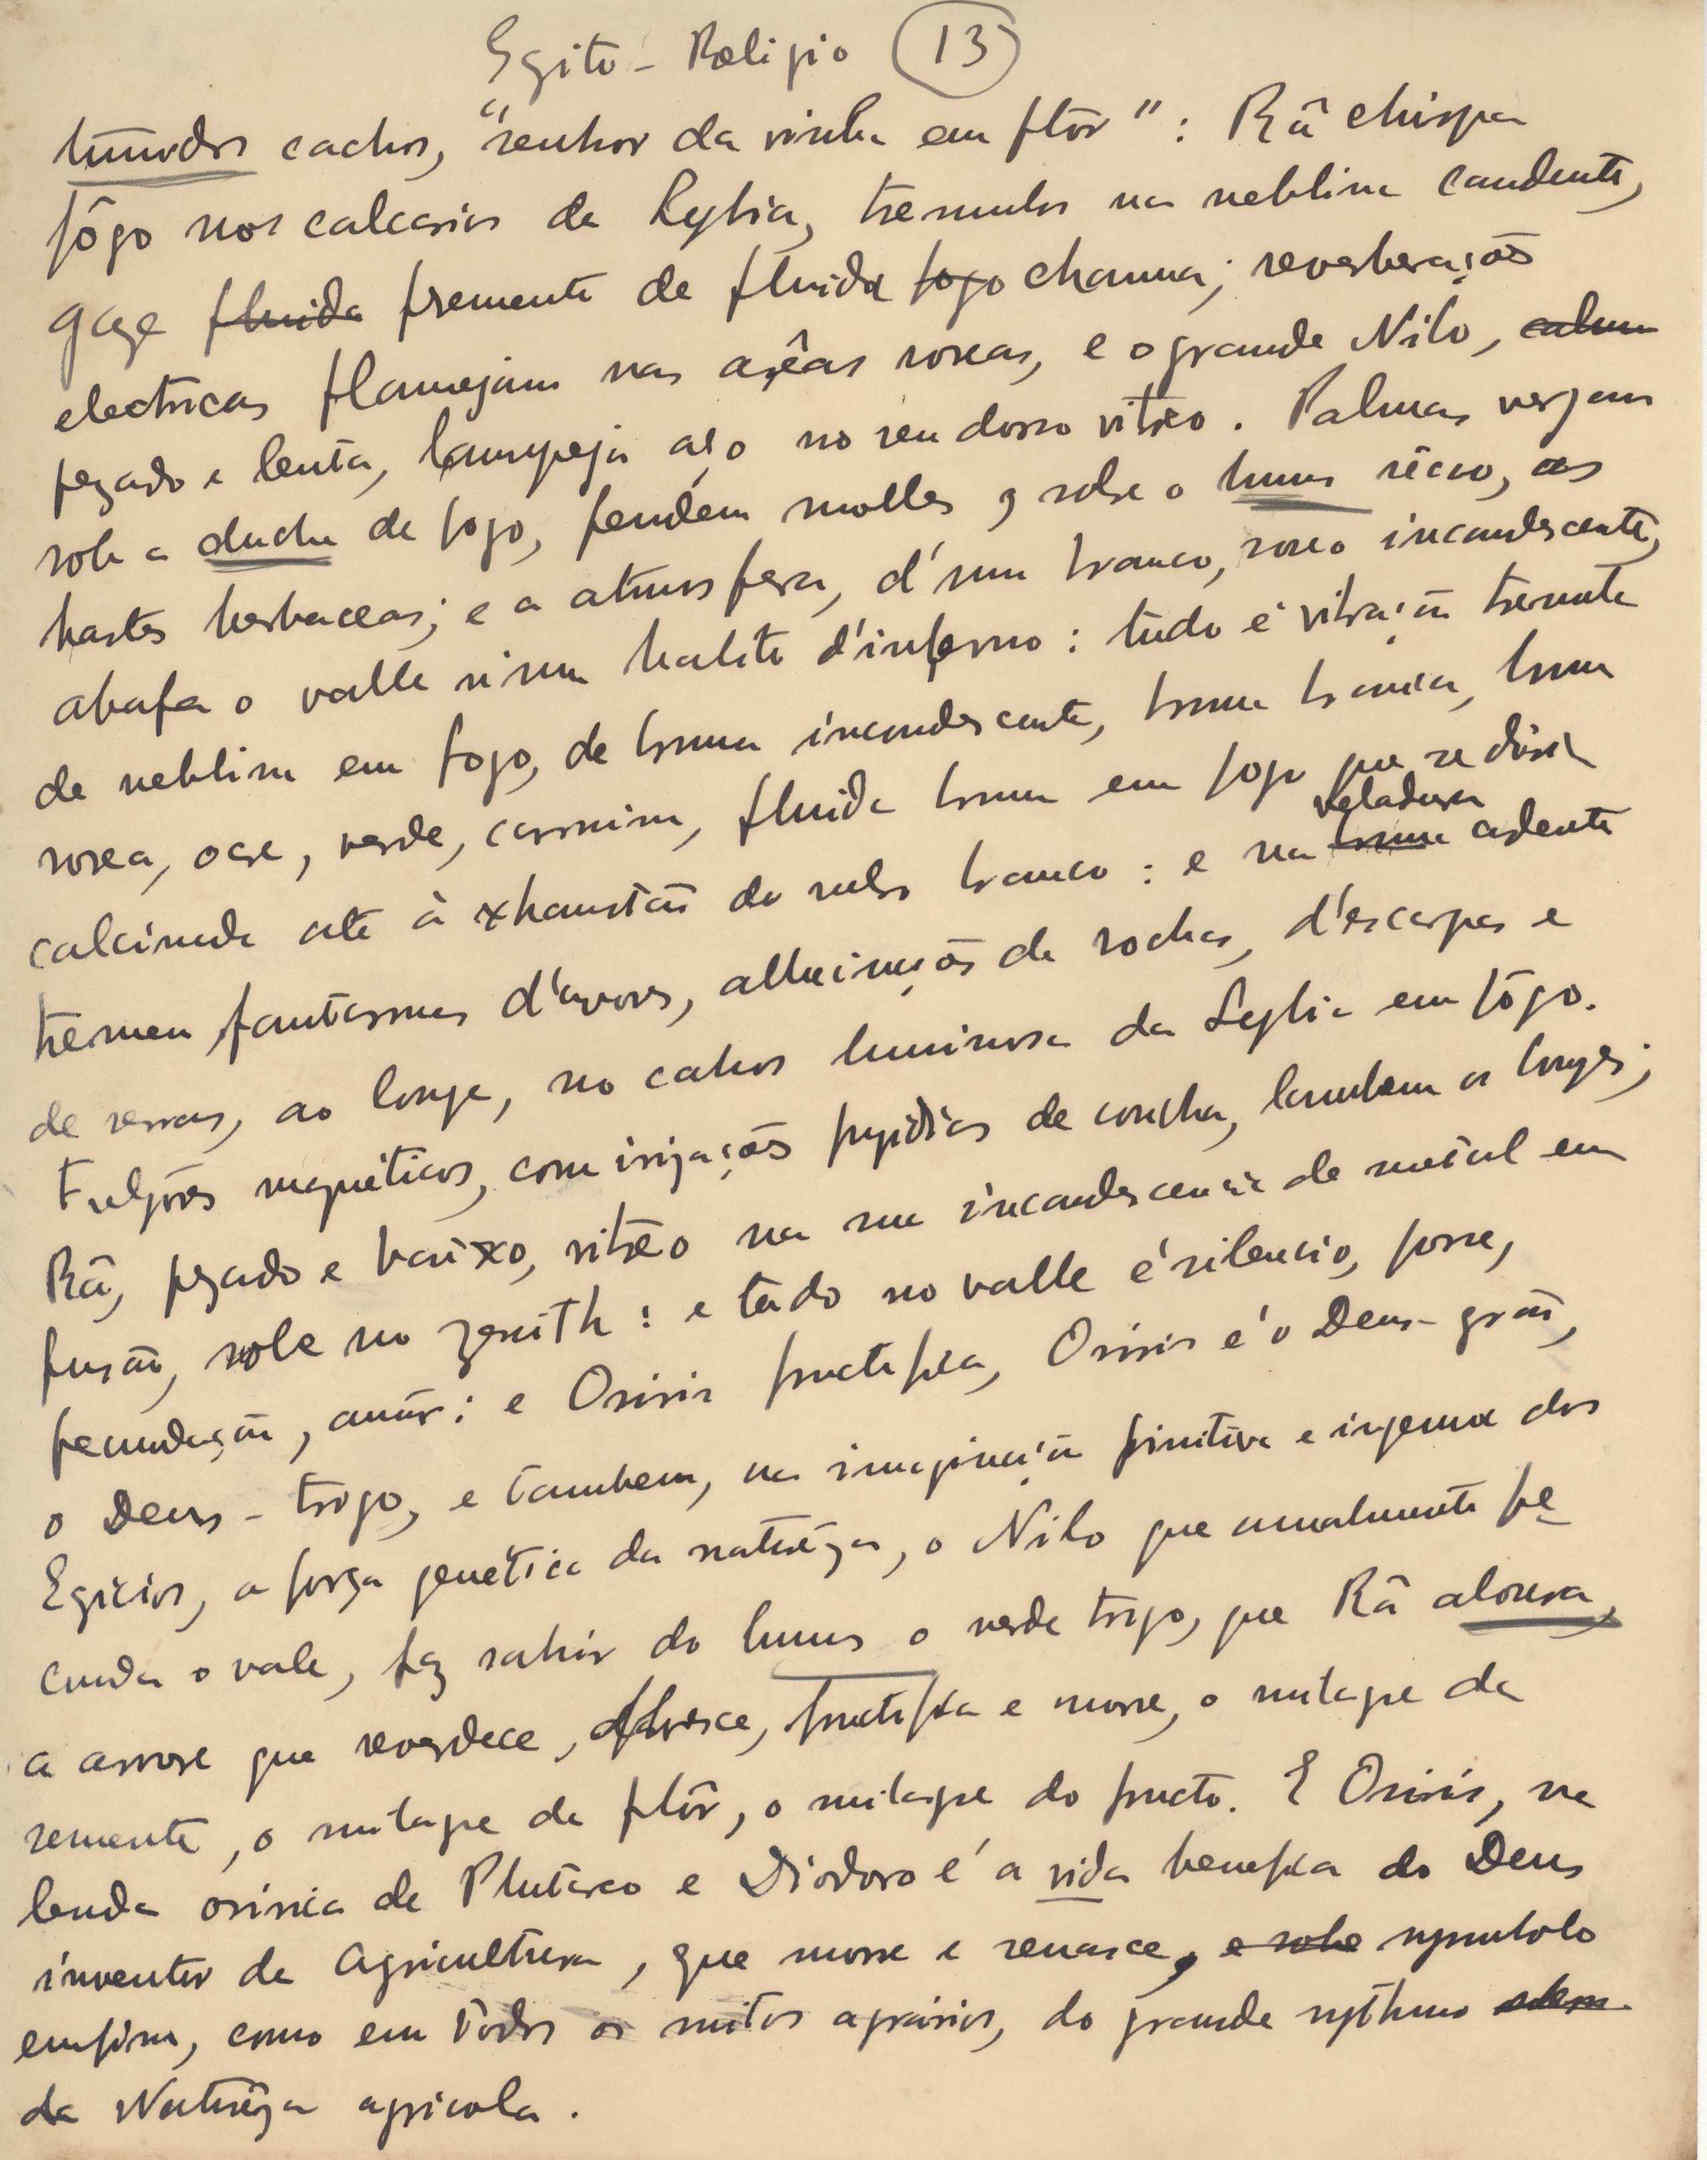 Egito - Religio (13)
húmidos cachos, "senhor da vinha em flôr": Râ chispa
fôgo nos calcarios da Lybia, tremulos na neblina candente,
gaze fluida fremente de fluida fogo chamma; reverberações
electricas flamejam nas arêas roxas, e o grande Nilo, calmo
pezado e lento, lampeja aço no seu dorso vitreo. Palmas vergam
sob a ducha de fogo, pendem molles, sobre o humus sêcco, as
hastes herbaceas; e a atmosfera, d'um branco, roxo incandescente,
abafa o valle n'um halito d'inferno: tudo é vibração tremente
de neblina em fogo, de bruma incandescente, bruma branca, bruma
roxea, ocre, verde, carmim, fluida bruma em fogo que se diria
calcinada até à exhaustão do rubro branco: e na bruma veladura ardente
tremem fantasmas d'arvores, allucinações de rochas, d'escarpas e
de serras, ao longe, no cahos luminoso da Lybia em fôgo.
Fulgôres magnéticos, com irizações fugidias de concha, lambem os longes;
Râ, pezado e baixo, vitreo na sua incandescencia de metal em
fusão, sobe no zenith: e tudo no valle é silencio, force,
fecundação, amôr: e Osiris fructifica, Osiris é o Deus-grão,
o Deus-trigo, e tambem, na imaginação primitiva e ingenua dos
Egicios, a força genética da naturêza, o Nilo que annalmente fe-
cunda o vale, faz sahir do humus o verde trigo, que Râ aloura,
a arvore que reverdece, floresce, fructifica e morre, o milagre da
semente, o milagre da flôr, o milagre do fructo. E Osiris, na
lenda osirica de Plutarco e Diodoro é a vida benefica do Deus
inventor da Agricultura, que morre e renasce, e sobe symbolo
emfim, como em todos os mitos agrários, do grande rythmo
da Naturêza agricola.